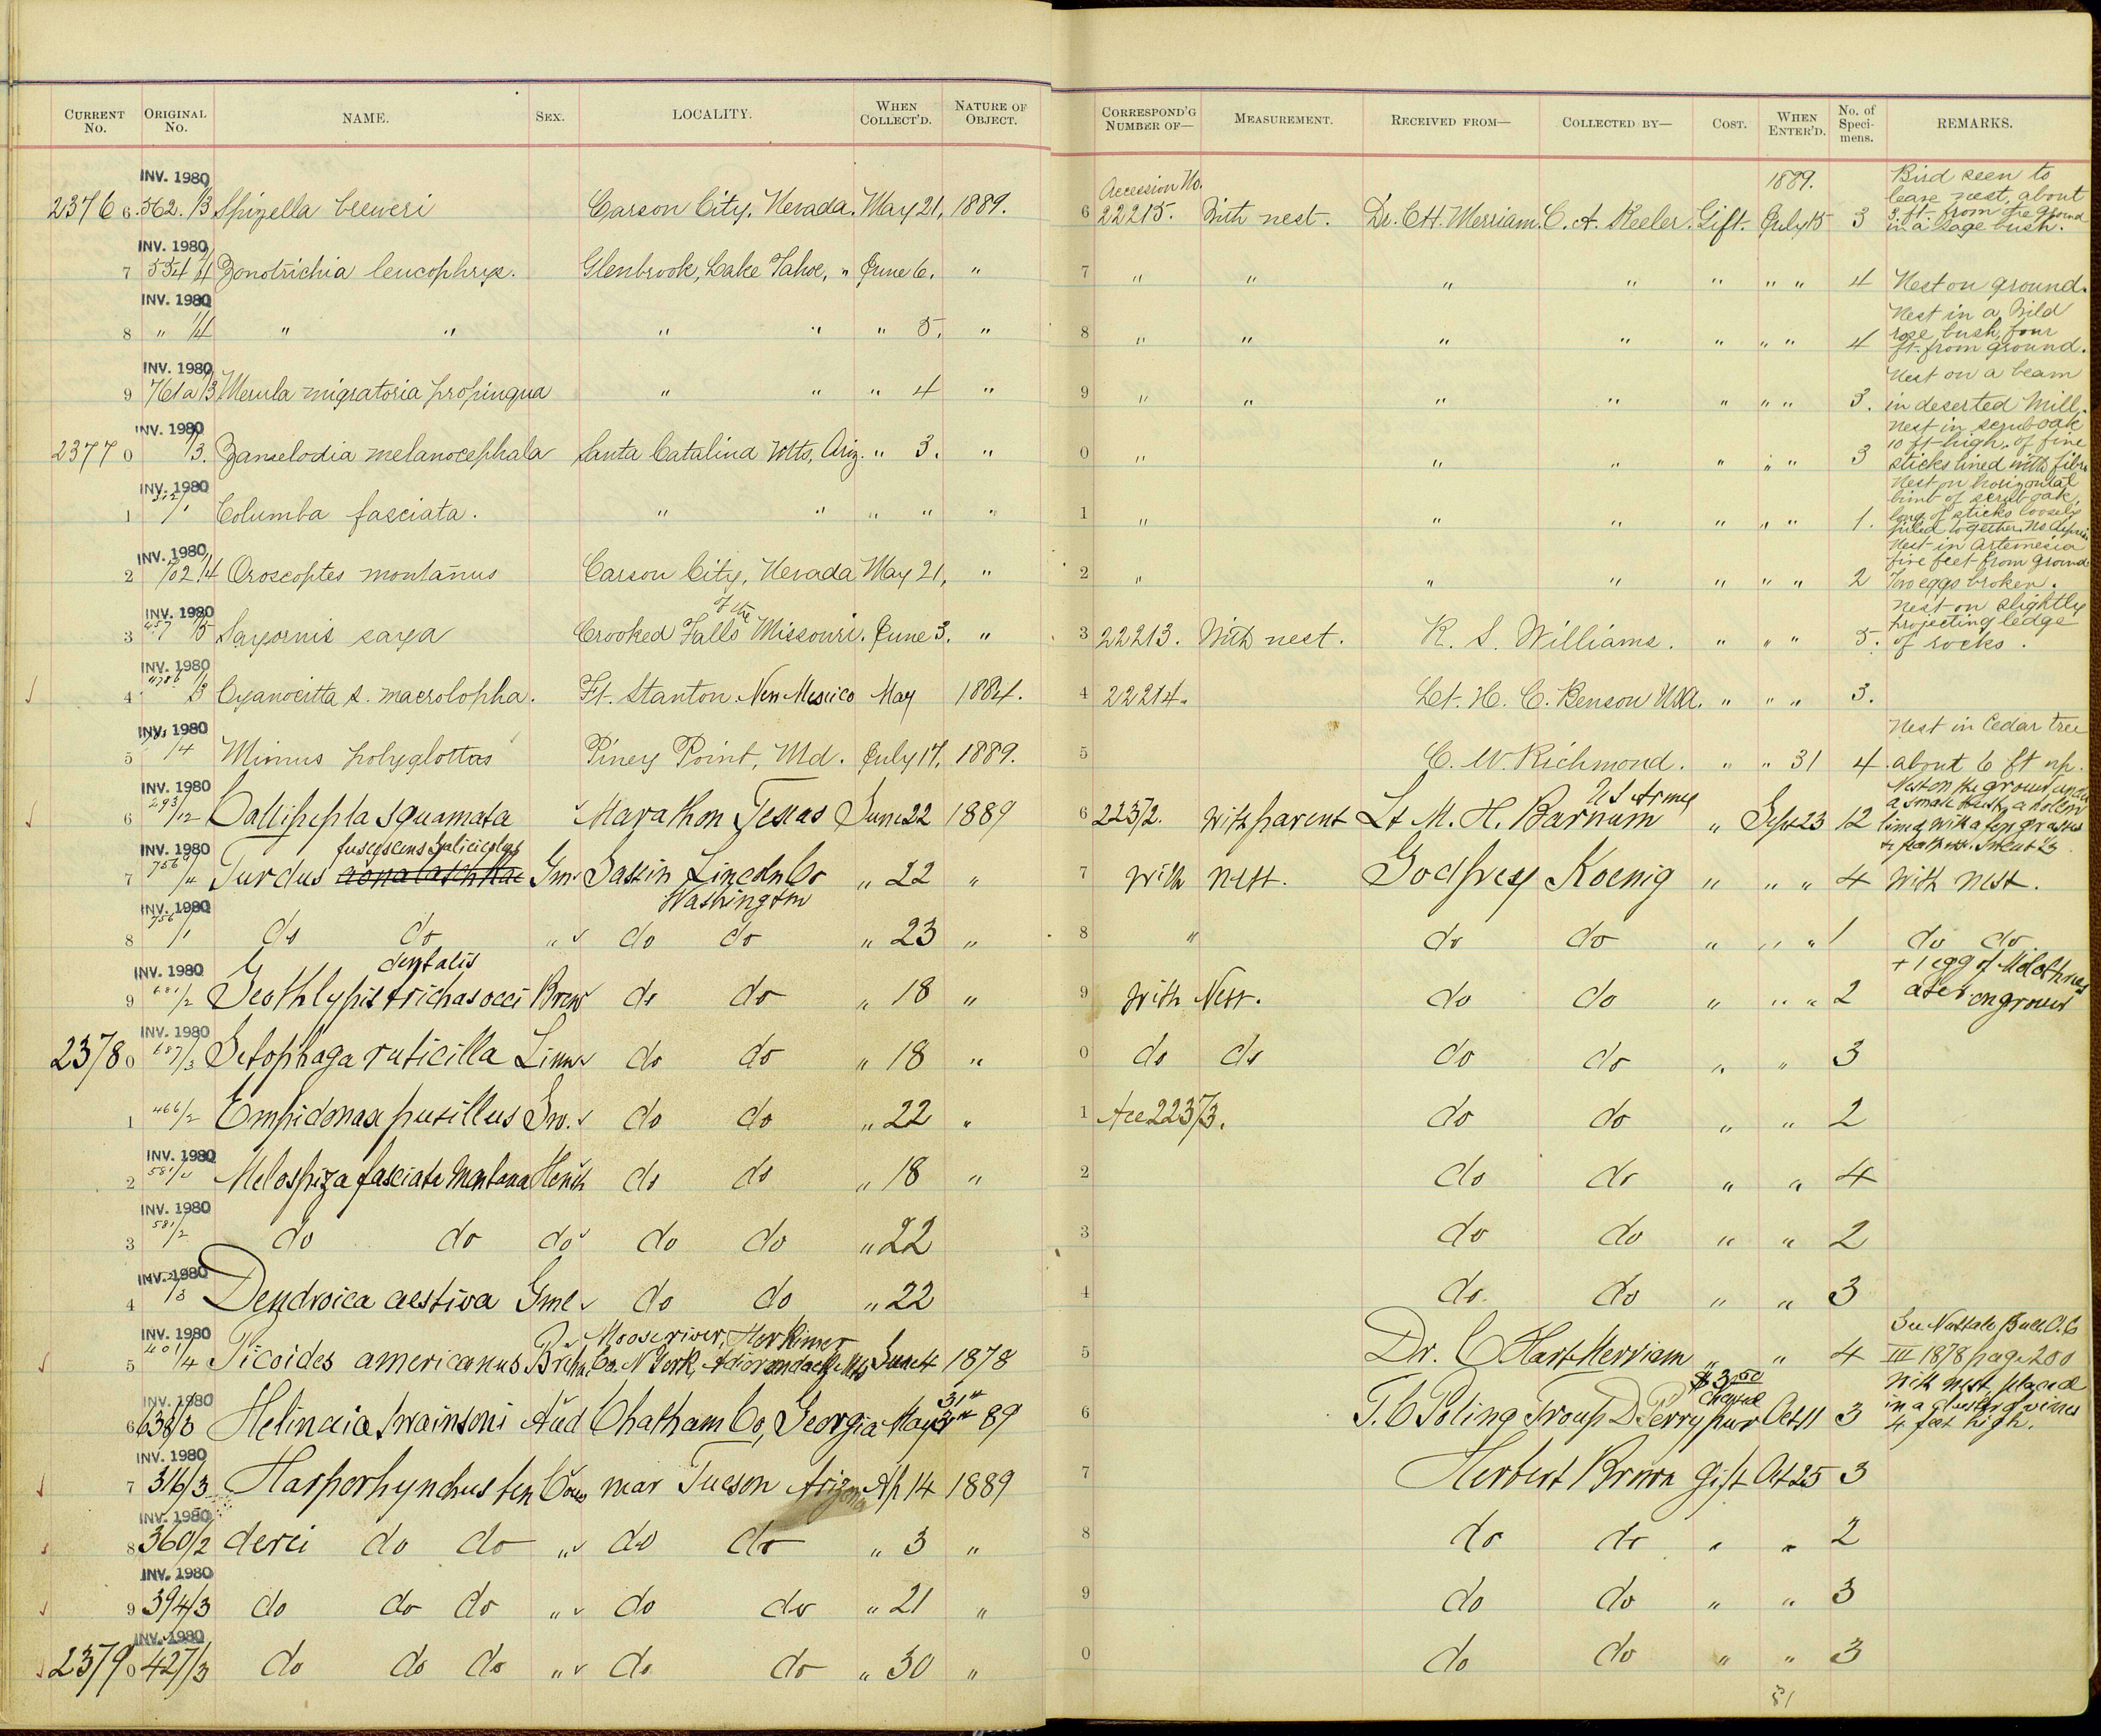 CURRENT No. ORIGINAL No. NAME. SEX. LOCALITY. WHEN COLLECT'D. NATURE OF OBJECT. CORRESPOND'G NUMBER OF— MEASUREMENT. RECEIVED FROM— COLLECTED BY— COST. WHEN ENTER'D. No. of Specimens. REMARKS.
INV. 1980 Accession No. 1889. Bird seen to
leave nest, about
2376 6 562. 1/3 Spizella breweri Carson City, Nevada. May 21, 1889. 6 22215. With nest. Dr. C.H. Merriam. C. A. Keeler. Gift. July 15 3 3 ft. from the ground
in a sage bush.
INV. 1980
7 554 1/4 Zonotrichia leucophrys. Glenbrook, Lake Tahoe, " June 6. " 7 " " " " " " " 4 Nest on ground.
INV. 1980 Nest in a Wild
8 " 1/4 " " " " " 5. " 8 " " " " " " " 4 rose bush, four
ft. from ground.
INV. 1980 Nest on a beam
9 761a 1/3 Merula migratoria propinqua " " " 4 " 9 " " " " " " " 3. in deserted Mill.
INV. 1980 Nest in scrub oak
10 ft high, of fine
2377 0 1/3. Zamelodia melanocephala Santa Catalina Mtts, Ariz. " 3. " 0 " " " " " " 3 sticks lined with fibre
INV. 1980 Nest on horizontal
limb of scrub oak,
1 312/1 Columba fasciata. " " " " " 1 " " " " " " 1. of sticks loosely
piled together. No
INV. 1980 Nest in Artemesia
five feet from ground
2 702 1/4 Oroscoptes montanus Carson City, Nevada May 21, " 2 " " " " " " 2 Two eggs broken.
INV. 1980 of the Nest on slightly
projecting ledge
3 457 1/5 Sayornis saya Crooked Falls Missouri. June 3. " 3 22213. With nest. R. S. Williams. " " " 5. of rocks.
INV. 1980
4 478b 1/3 Cyanocitta s. macrolopha. Ft. Stanton. New Mexico May 1884. 4 22214. Lt. H. C. Benson USA. " " " 3.
INV. 1980 Nest in Cedar tree
5 1/4 Mimus polyglottos Piney Point, Md. July 17, 1889. 5 C. W. Richmond. " " 31 4. about 6 ft up.
INV. 1980 U S Army Nest on the ground under
a small bush, a hollow
6 293/12 Callipepla squamata Marathon Texas June 22 1889 6 22372. With parent Lt M. H. Barnum " Sept 23 12 lined with a few grasses
INV. 1980 fuscescens Salicicolus
7 756a/4 Turdus Gm. Saskin Lincoln Co " 22 " 7 With nest. Godfrey Koenig " " " 4 With nest.
Washington
INV. 1980
8 756/1 do do " do do " 23 " 8 " do do " " " 1 do do
INV. 1980 + 1 egg of Molothrus
9 681/2 Geothlypis trichas occidentalis Brew do do " 18 " 9 With Nest. do do " " " 2 ater on ground
INV. 1980
2378 0 687/3 Setophaga ruticilla Linn do do " 18 " 0 do do do do " " 3
1 466/2 Empidonax pusillus Sw. do do " 22 " 1 Acc 22373. do do " " 2
INV. 1980
2 581/4 Melospiza fasciata Montana Hensh do do " 18 " 2 do do " " 4
INV. 1980
3 581/2 do do do do do " 22 3 do do " " 2
INV. 1980
4 /3 Dendroica aestiva Gmel do do " 22 4 do do " " 3
INV. 1980 Moose river, Herkimer See Nuttall Bull. O. C
5 401/4 Picoides americanus Brehm Co. N York, Adirondack Mts June 4 1878 5 Dr. C Hart Merriam " " 4 III 1878 page 200
INV. 1980 31st $3.50 Charge With nest, placed
in a cluster of vines
6 638/3 Helinaia Swainsoni Aud Chatham Co, Georgia May 89 6 T. C Poling Troup D Perry pur Oct 11 3 4 feet high.
INV. 1980
7 316/3 Harporhynchus ben Coues near Tucson Arizona Ap 14 1889 7 Herbert Brown Gift Oct 25 3
INV. 1980
8 360/2 derei do do " do do " 3 " 8 do do " " 2
INV. 1980
9 394/3 do do do " do do " 21 " 9 do do " " 3
INV. 1980
2379 0 427/3 do do do " do do " 30 " 0 do do " " 3
81